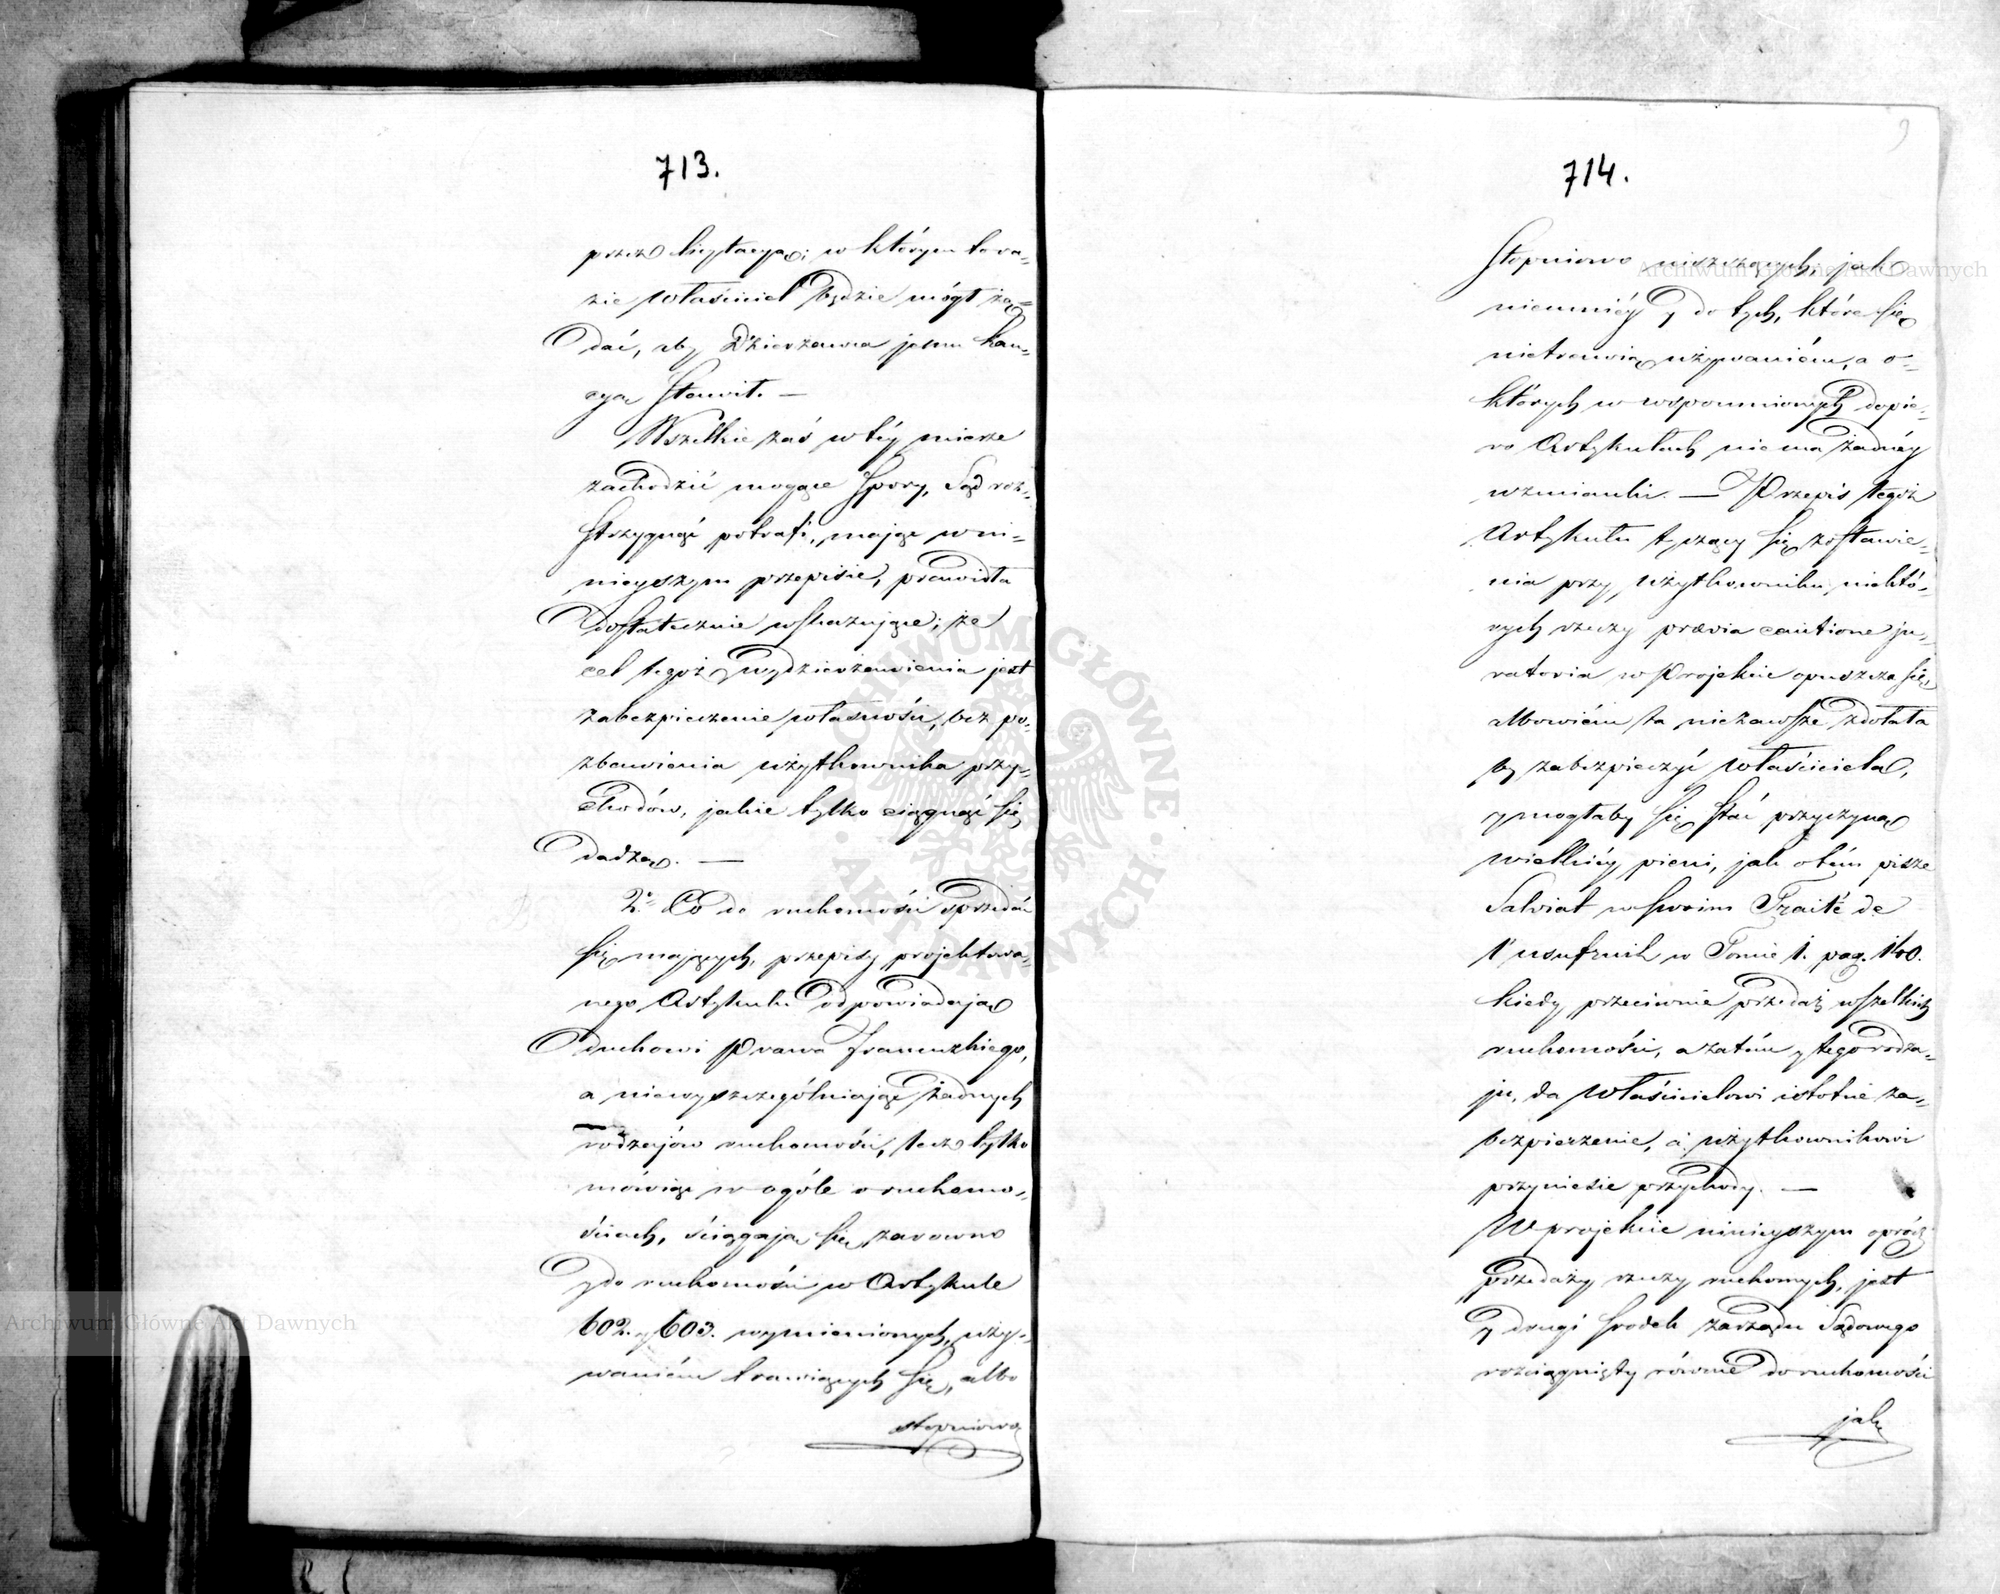 713.
przez licytacyą; w którym to ra-
zie właściciel będzie mógł żą-
dać, aby Dzierżawca jemu kau-
cyą stawił. —
Wszelkie zaś w téy mierze
zachodzić mogące spory, Sąd roz-
strzygnąć potrafi, mając w ni-
nieyszym przepisie, prawidła
dostatecznie wskazujące; że
cel tegoż wydzierżawienia jest
zabezpieczenie własności, bez po-
zbawienia użytkownika przy-
chodów, jakie tylko ciągnąć się
dadzą. —
2º Co do ruchomości sprzedać
się mających, przepisy projektowa-
nego Artykułu odpowiadają
duchowi Prawa francuzkiego,
a niewyszczególniając żadnych
rodzajów ruchomości, lecz tylko
mówiąc w ogóle o ruchomo-
ściach, ściągają się zarówno
y do ruchomości w Artykule
602. y 603. wymienionych, uży-
waniém trawiących się, albo
stopniowo
714.
stopniowo niszczących, jak
niemniéy y do tych, które się
nietrawią używaniém, a o
których w wspomnionych dopie-
ro Artykułach niema żadnéy
wzmianki. — Przepis tegoż
Artykułu tyczący się zostawie-
nia przy użytkowniku niektó-
rych rzeczy prævia cautione ju-
ratoria w Projekcie opuszcza się
albowiém ta niezawsze zdołała
by zabezpieczyć właściciela,
y mogłaby się stać przyczyną
wielkiéy pieni, jak o tém pisze
Salviat w swoim Traité de
l'usufruit w Tomie 1. pag. 160.
kiedy przeciwnie przedaż wszelkich
ruchomości, a zatém y tego rodza-
ju, da właścicielowi istotne za-
bezpieczenie, a użytkownikowi
przyniesie przychody. —
W projekcie ninieyszym oprócz
przedaży rzeczy ruchomych, jest
y drugi środek zarządu Sądowego
rozciągnięty równie do ruchomości
jak
Archiwum Główne Akt Dawnych
Archiwum Główne Akt Dawnych
ARCHIWUM GŁÓWNE · AKT DAWNYCH ·